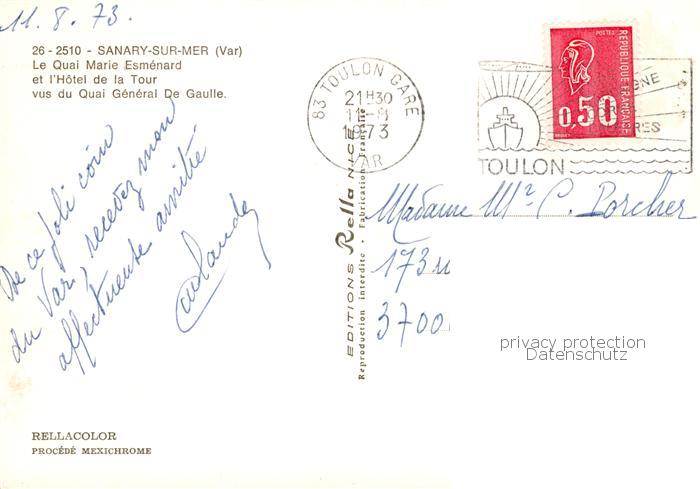 11.8.73.
26 - 2510 - SANARY-SUR-MER (Var)
Le Quai Marie Esménard
et l'Hôtel de la Tour
vus du Quai Général De Gaulle.
De ce joli coin
du Var, recevez mon
affectueuse amitié
RELLACOLOR
PROCÉDÉ MEXICHROME
EDITIONS Rella NICE
Reproduction interdite - Fabrication Française
83 TOULON GARE
21H30
11-8
1973
VAR
POSTES
REPUBLIQUE FRANÇAISE
0,50
TOULON
Madame Mr C. Porcher
173
3700
privacy protection
Datenschutz